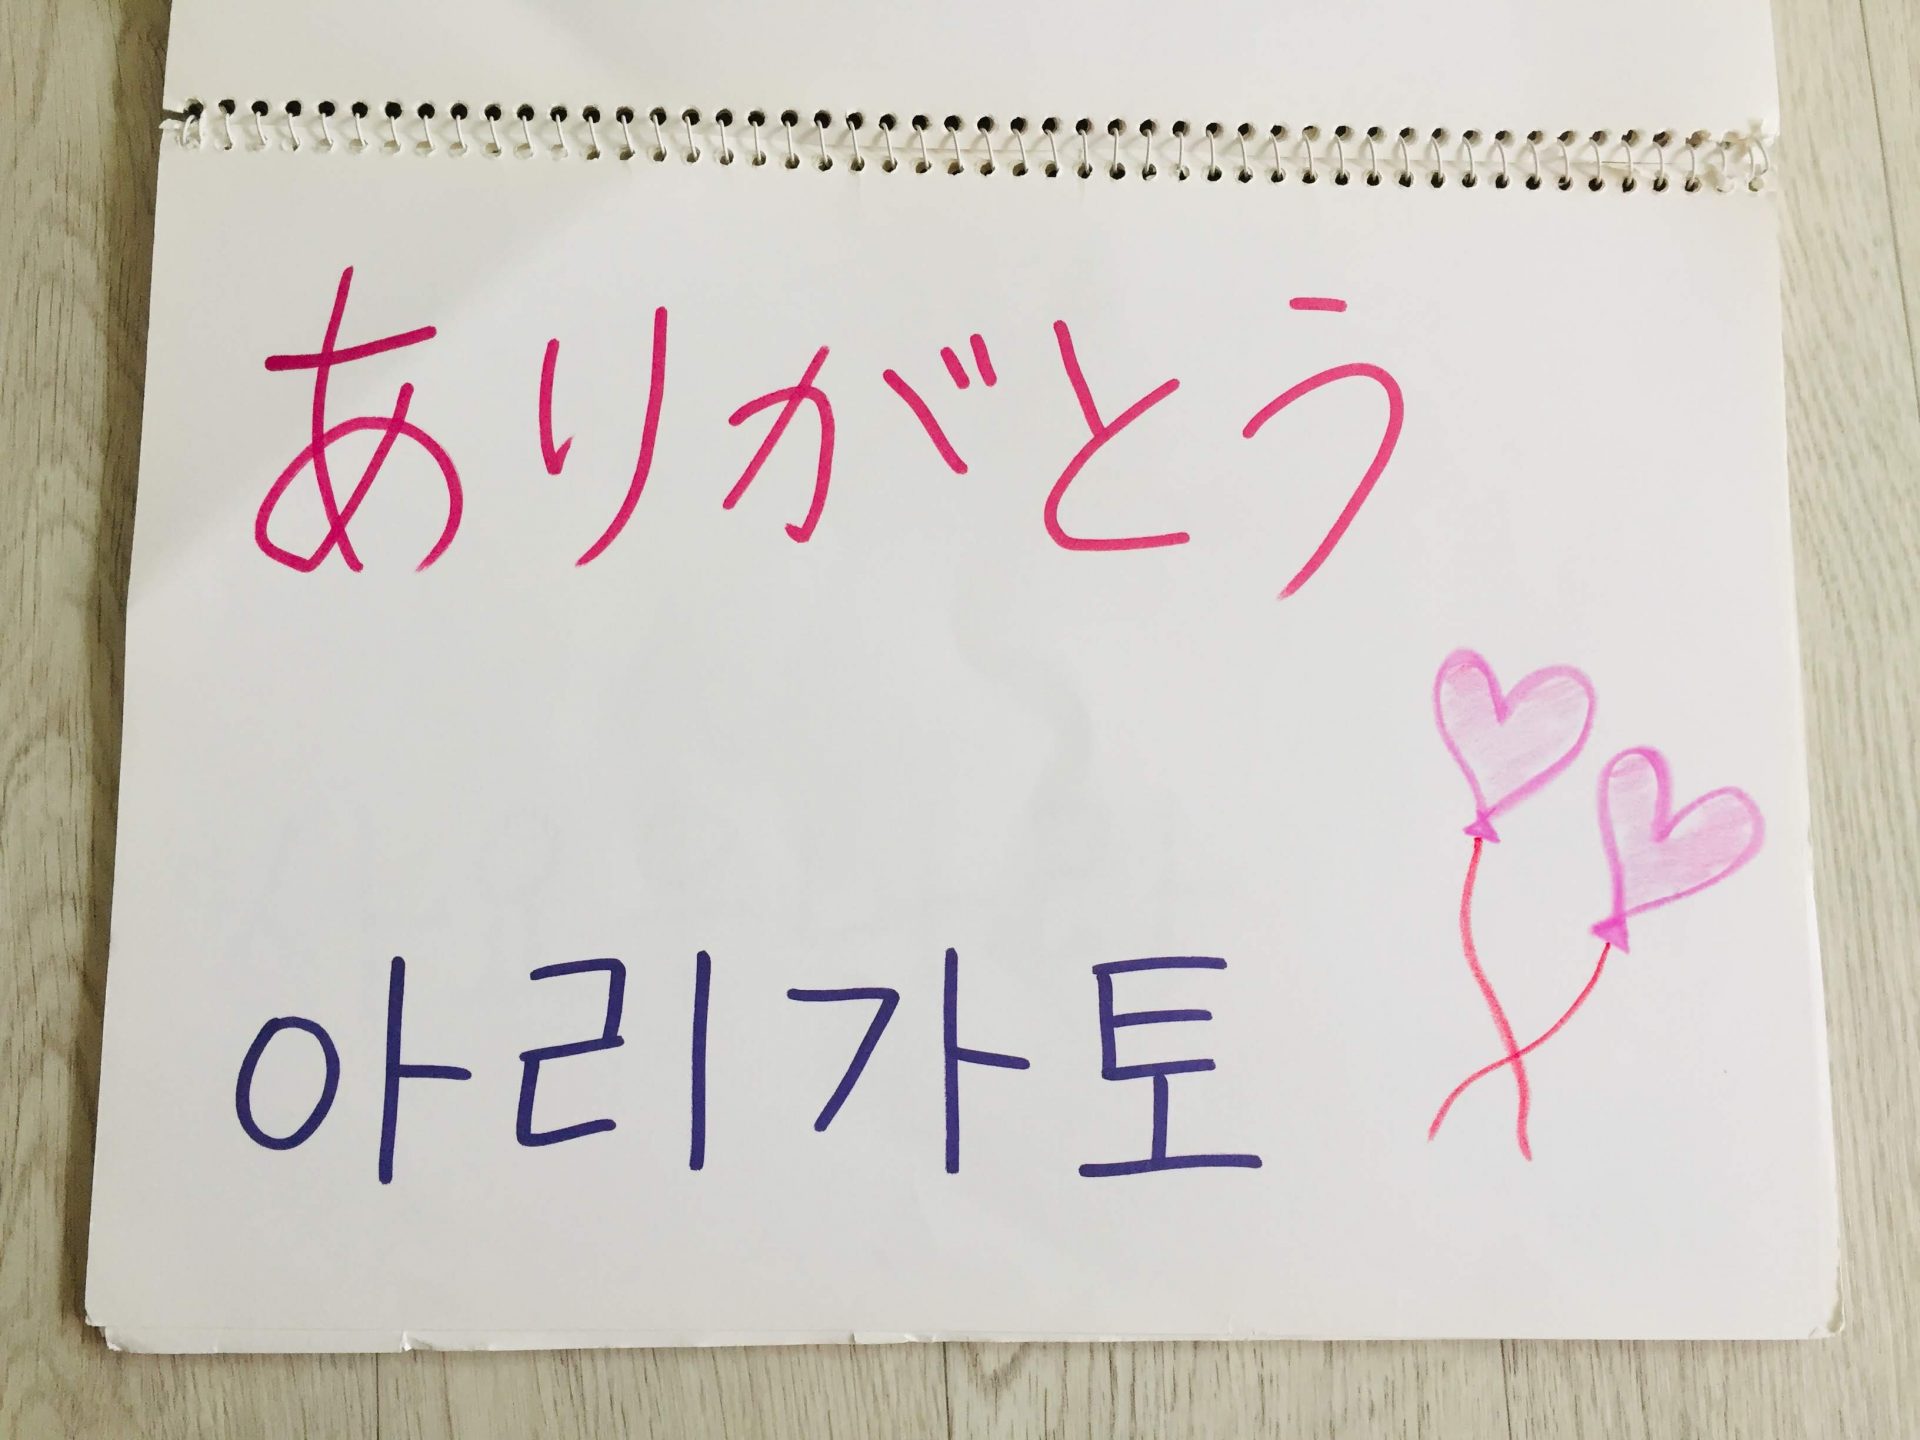 ありがとう
아리가토